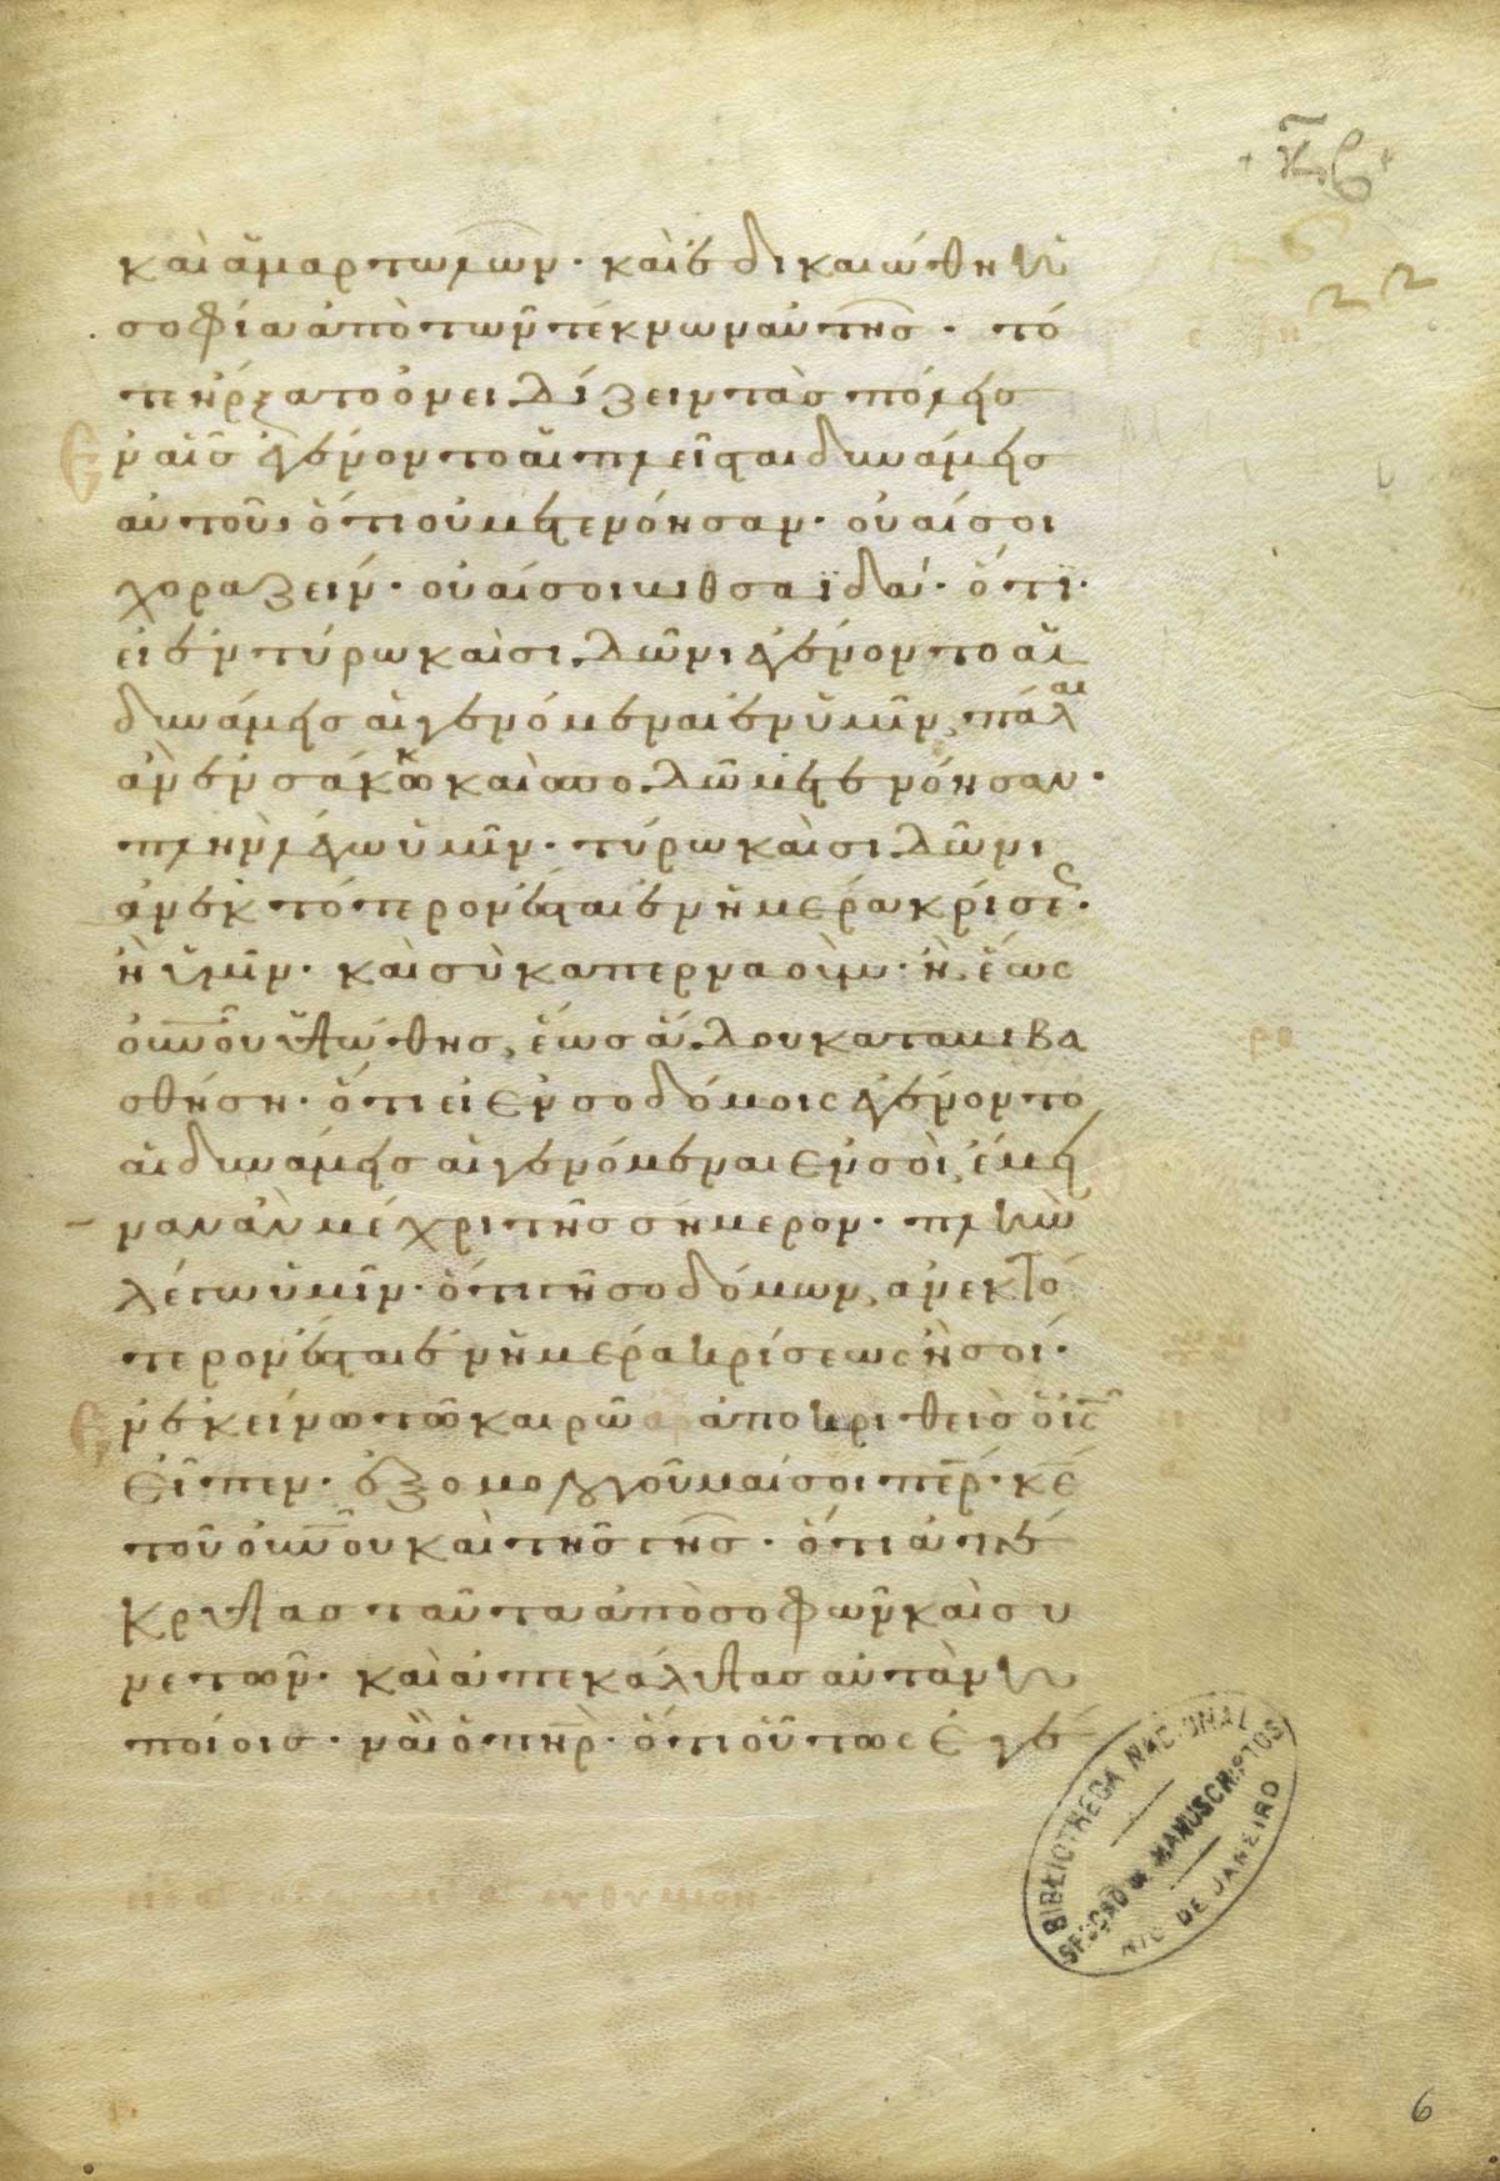 κβ
22
καὶ ἁμαρτωλῶν· καὶ ἐδικαιώθη ἡ
σοφία ἀπὸ τῶν τέκνων αὐτῆς· τό
τε ἤρξατο ὀνειδίζειν τὰς πόλεις
Ἐν αἷς ἐγένοντο αἱ πλεῖσται δυνάμεις
αὐτοῦ, ὅτι οὐ μετενόησαν· οὐαί σοι
χοραζείν· οὐαί σοι βιθσαϊδά· ὅτι·
εἰ ἐν τύρω καὶ σιδῶνι ἐγένοντο αἱ
δυνάμεις αἱ γενόμεναι ἐν ὑμῖν, πάλαι
ἂν ἐν σάκκω καὶ σποδῶ μετενόησαν·
πλὴν λέγω ὑμῖν· τύρω καὶ σιδῶνι
ἀνεκτότερον ἔσται ἐν ἡμέρα κρίσεως·
ἢ ὑμῖν· καὶ σὺ καπερναούμ· ἡ ἕως
οὐνοῦ ὑψώθης, ἕως ἅδου καταβιβα
σθήση· ὅτι εἰ Ἐν σοδόμοις ἐγένοντο
αἱ δυνάμεις αἱ γενόμεναι Ἐν σοὶ, ἔμει
ναν ἂν μέχρι τῆς σήμερον· πλὴν
λέγω ὑμῖν· ὅτι γῆ σοδόμων, ἀνεκτό
τερον ἔσται ἐν ἡμέρα κρίσεως ἢ σοί·
Ἐν ἐκείνω τῶ καιρῶ ἀποκριθεὶς ὁ ις
Εἶπεν· ἐξομολογοῦμαί σοι περ· κε
τοῦ οὐνοῦ καὶ τῆς γῆς· ὅτι ἀπέ
κρυψας ταῦτα ἀπὸ σοφῶν καὶ συ
νετῶν· καὶ ἀπεκάλυψας αὐτὰ νη
πίοις· ναὶ ὁ πηρ· ὅτι οὕτως Ἐγέ
BIBLIOTHECA NACIONAL
SECÇÃO DE MANUSCRIPTOS
RIO DE JANEIRO
6